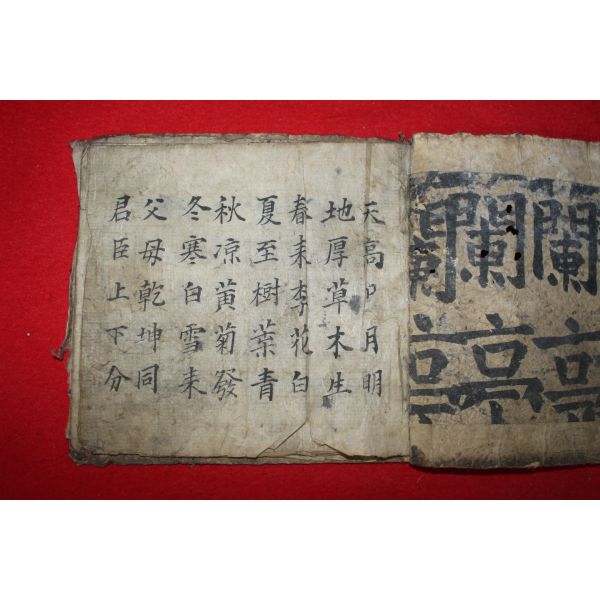 天高日月明
地厚草木生
春来李花白
夏至樹葉青
秋凉黄菊發
冬寒白雪来
父母乾坤同
君臣上下分